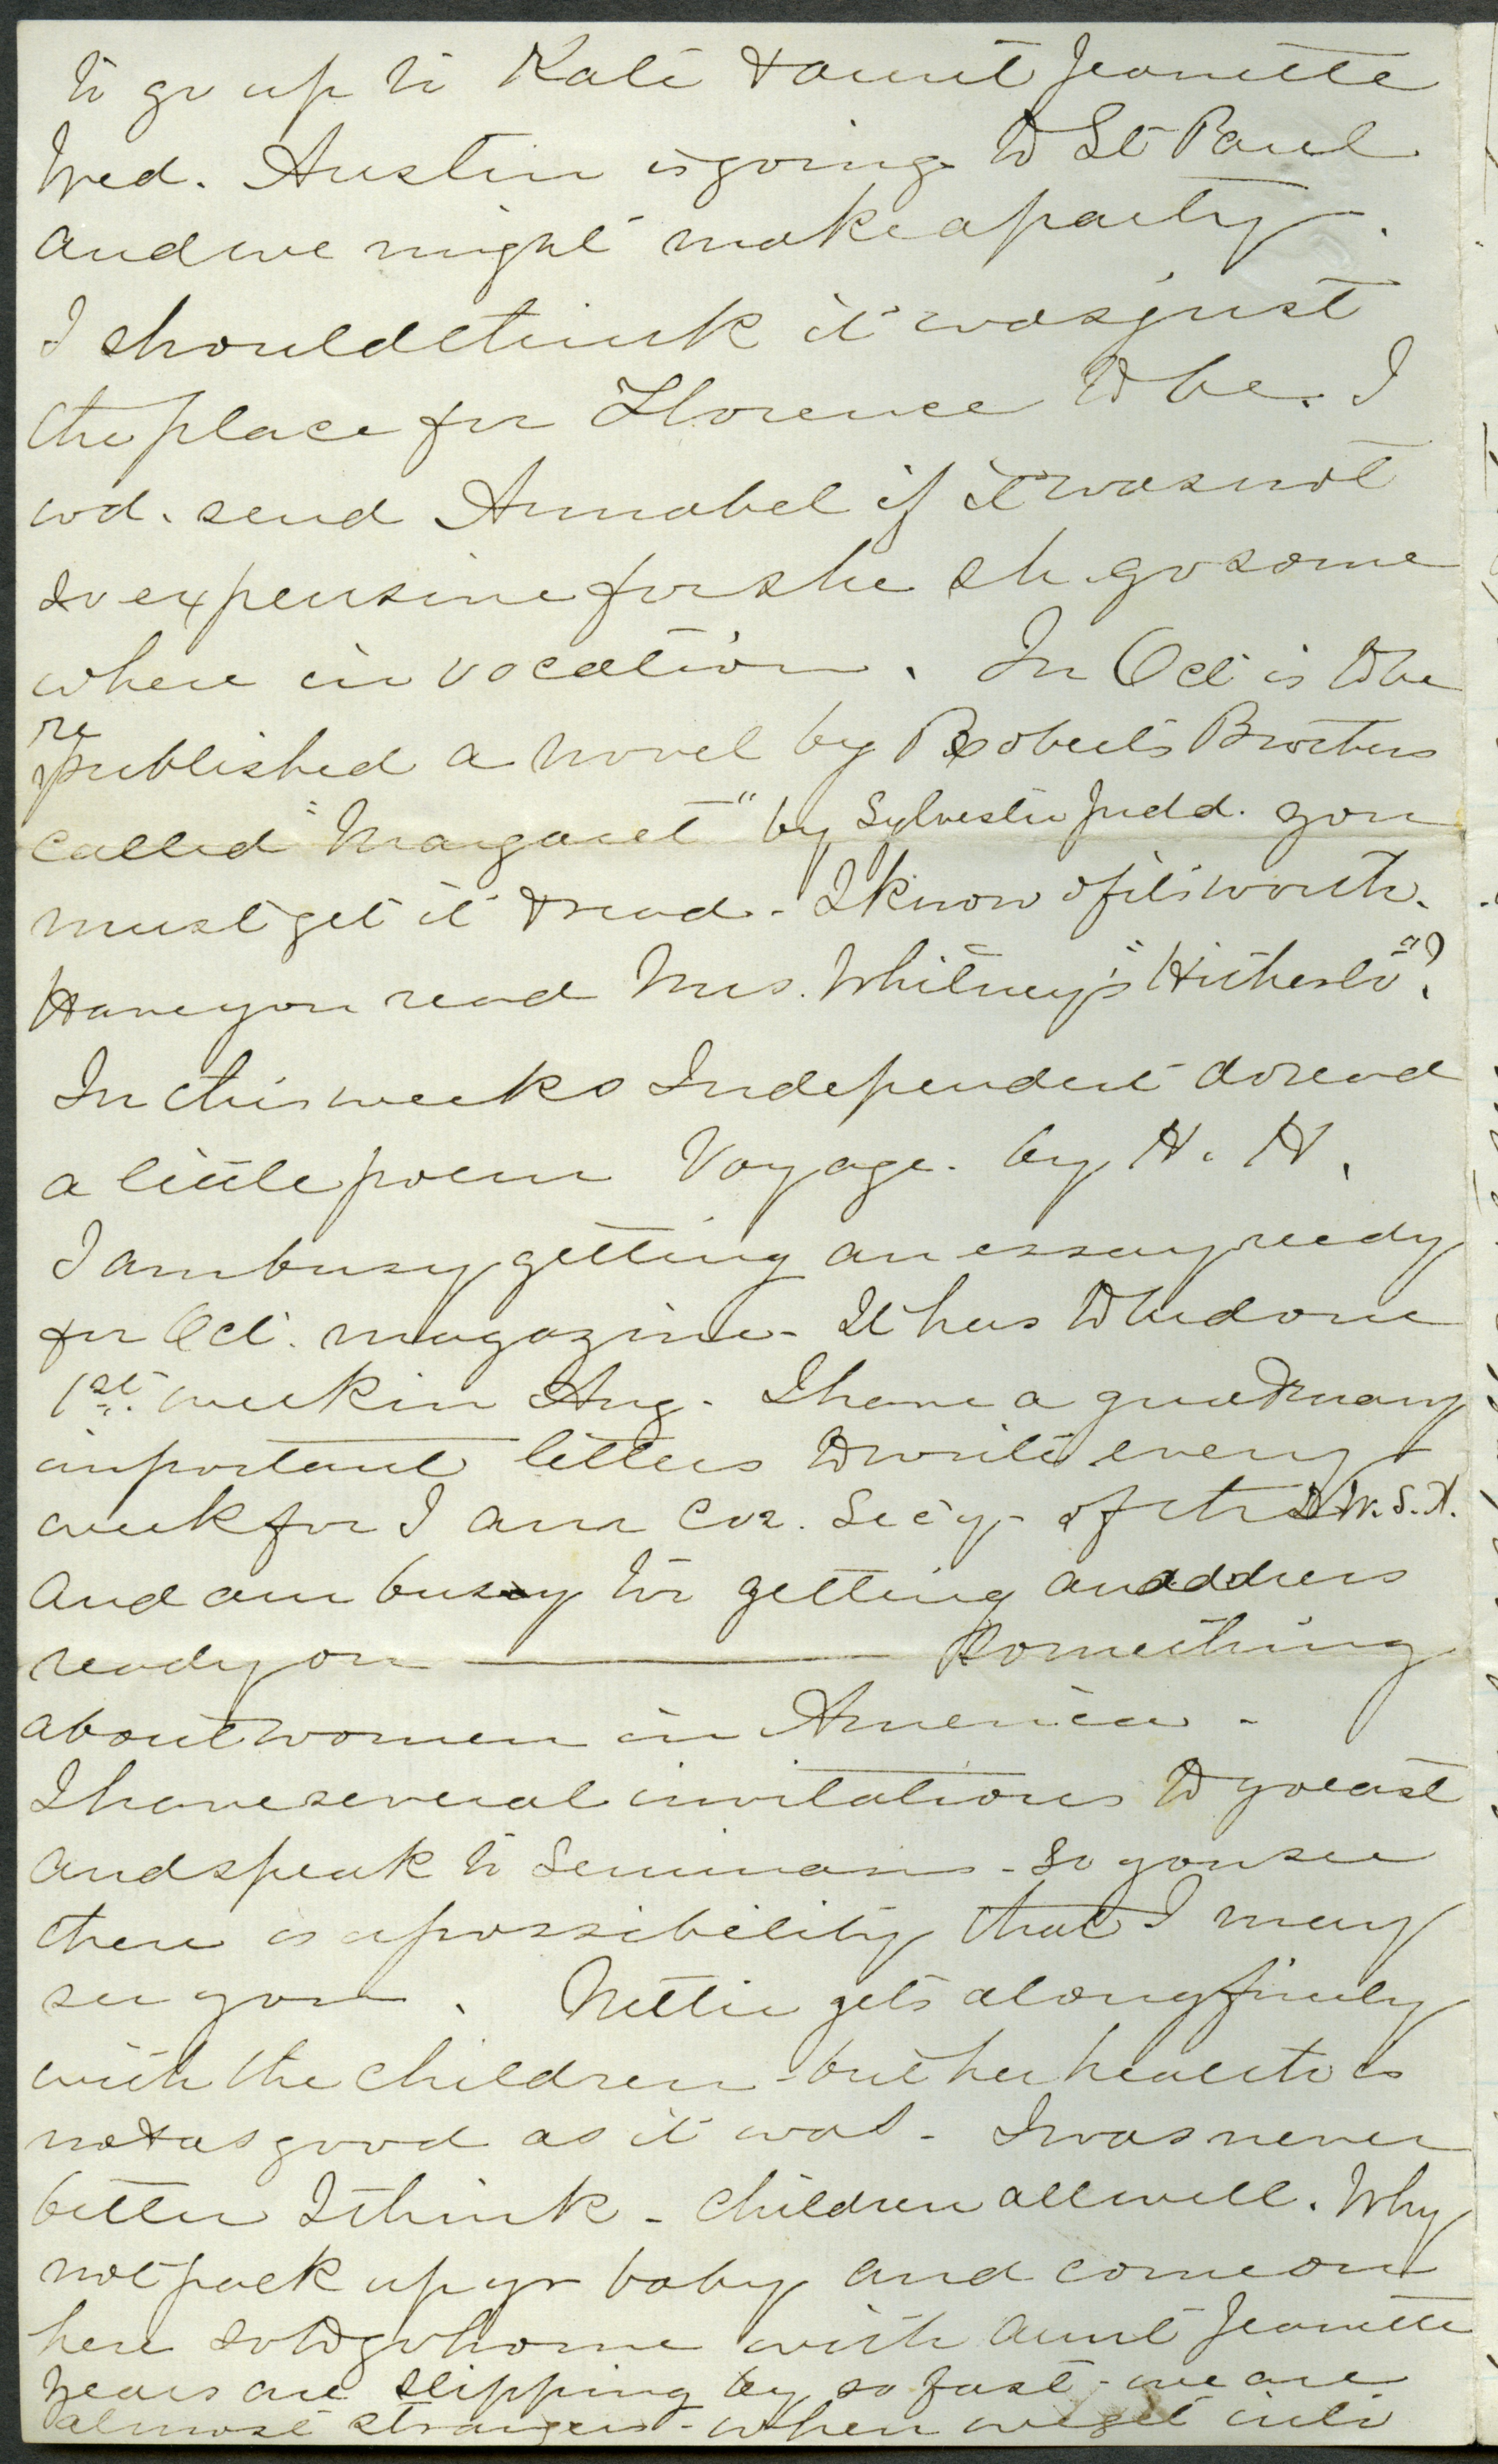 to go up to Kate & aunt Jeanette
Wed. Austin is going to St Paul
and we might make a party.
I should think it was just
the place for Florence to be. I
wd. send Annabel if it was not
so expensive for she sh. go some
where in vacation. In Oct is to be
re
published a novel by Roberts Brothers
called "Margaret" by Sylvester Judd. you
must get it & read - I know of its worth.
Have you read Mrs. Whitney's "Hitherto"?
In this weeks Independent do read
a little poem Voyage. by H. H.
I am busy getting an essay ready
for Oct. magazine - It has to be done
1st. week in Aug. I have a great many
important letters to write every
week for I am Cor. Sec'y - of the W.S.A.
and am busy too getting an address
ready on ——— Something
about women in America -
I have several invitations to go east
and speak to Seminaries - So you see
there is a possibility that I may
see you. Nettie gets along finely
with the children - but her health is
not as good as it was - I was never
better I think - Children all well. Why
not pack up yr baby and come out
here so to go home with aunt Jeanette
Years are slipping by so fast - we are
almost strangers - when we get into